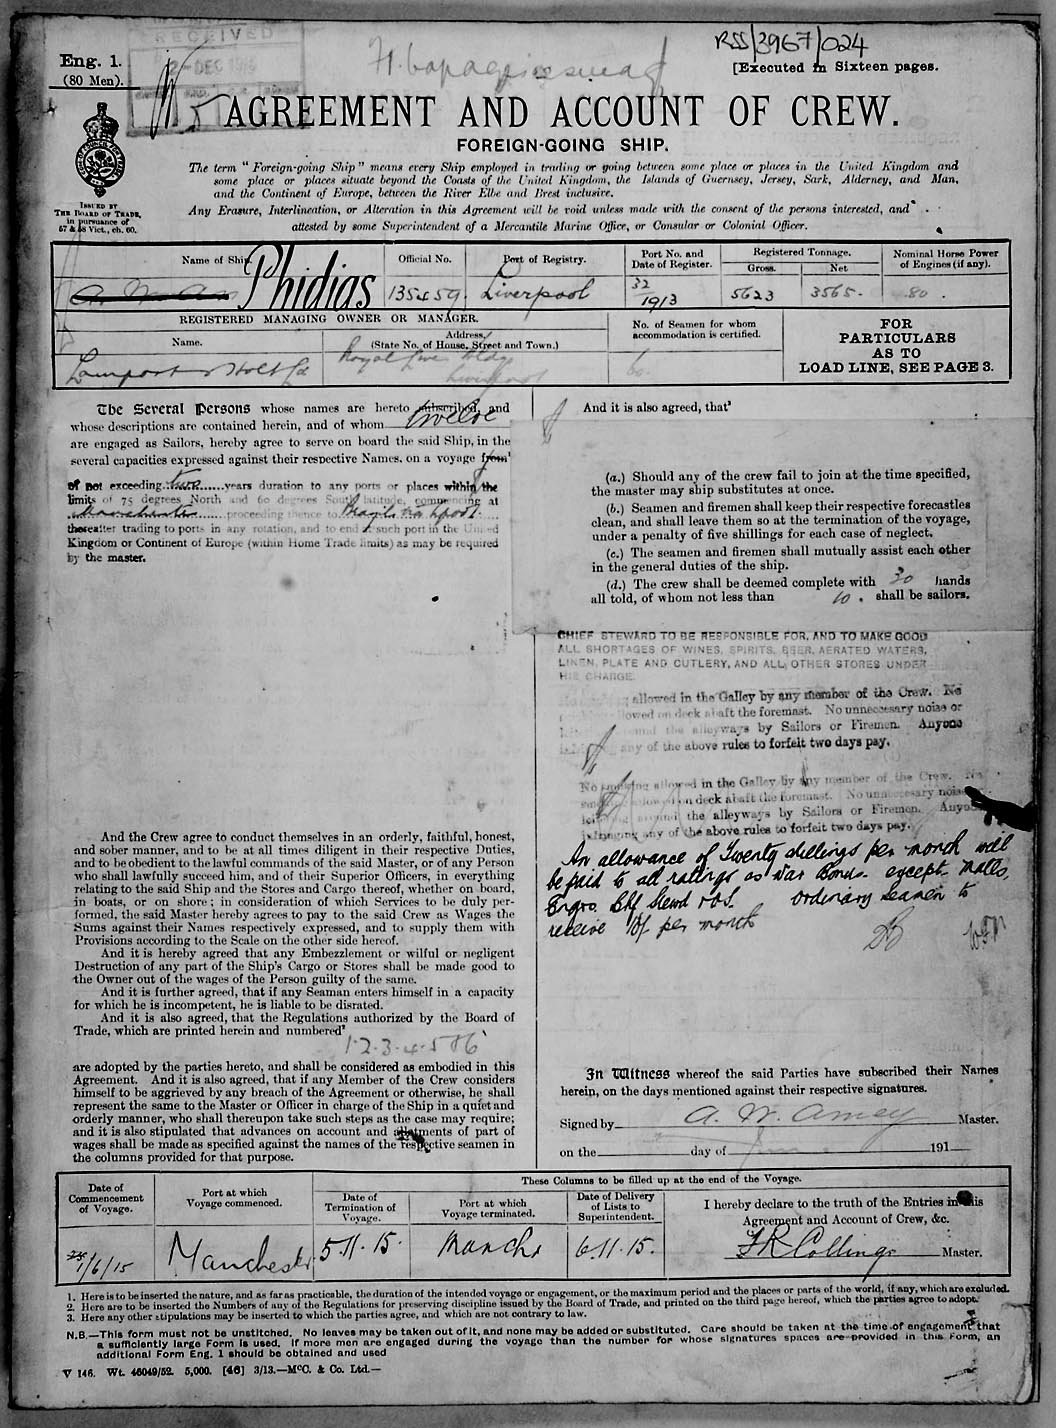 RECEIVED
2-DEC
RSS/3967/024
Eng. 1.
(80 Men).
[Executed in Sixteen pages.
AGREEMENT AND ACCOUNT OF CREW.
FOREIGN-GOING SHIP.
ISSUED BY
THE BOARD OF TRADE,
in pursuance of
57 & 58 Vict., ch. 60.
The term "Foreign-going Ship" means every Ship employed in trading or going between some place or places in the United Kingdom and
some place or places situate beyond the Coasts of the United Kingdom, the Islands of Guernsey, Jersey, Sark, Alderney, and Man,
and the Continent of Europe, between the River Elbe and Brest inclusive.
Any Erasure, Interlineation, or Alteration in this Agreement will be void unless made with the consent of the persons interested, and
attested by some Superintendent of a Mercantile Marine Office, or Consular or Colonial Officer.
Name of Ship.
Official No.
Port of Registry.
Port No. and
Date of Register.
Registered Tonnage.
Gross.
Net
Nominal Horse Power
of Engines (if any).
Phidias
135459.
Liverpool
32
1913
5623
3565.
80.
REGISTERED MANAGING OWNER OR MANAGER.
Name.
Address.
(State No. of House, Street and Town.)
No. of Seamen for whom
accommodation is certified.
FOR
PARTICULARS
AS TO
LOAD LINE, SEE PAGE 3.
Lamport & Holt Ld
Royal Liver Bldg
Liverpool
60.
The Several Persons whose names are hereto subscribed, and
whose descriptions are contained herein, and of whom twelve
are engaged as Sailors, hereby agree to serve on board the said Ship, in the
several capacities expressed against their respective Names, on a voyage from¹
of not exceeding two years duration to any ports or places within the
limits of 75 degrees North and 60 degrees South latitude, commencing at
Manchester proceeding thence to Brazil
thereafter trading to ports in any rotation, and to end at such port in the United
Kingdom or Continent of Europe (within Home Trade limits) as may be required
by the master.
And the Crew agree to conduct themselves in an orderly, faithful, honest,
and sober manner, and to be at all times diligent in their respective Duties,
and to be obedient to the lawful commands of the said Master, or of any Person
who shall lawfully succeed him, and of their Superior Officers, in everything
relating to the said Ship and the Stores and Cargo thereof, whether on board,
in boats, or on shore; in consideration of which Services to be duly per-
formed, the said Master hereby agrees to pay to the said Crew as Wages the
Sums against their Names respectively expressed, and to supply them with
Provisions according to the Scale on the other side hereof.
And it is hereby agreed that any Embezzlement or wilful or negligent
Destruction of any part of the Ship's Cargo or Stores shall be made good to
the Owner out of the wages of the Person guilty of the same.
And it is further agreed, that if any Seaman enters himself in a capacity
for which he is incompetent, he is liable to be disrated.
And it is also agreed, that the Regulations authorized by the Board of
Trade, which are printed herein and numbered²
1.2.3.4.5 & 6
are adopted by the parties hereto, and shall be considered as embodied in this
Agreement. And it is also agreed, that if any Member of the Crew considers
himself to be aggrieved by any breach of the Agreement or otherwise, he shall
represent the same to the Master or Officer in charge of the Ship in a quiet and
orderly manner, who shall thereupon take such steps as the case may require;
and it is also stipulated that advances on account and allotments of part of
wages shall be made as specified against the names of the respective seamen in
the columns provided for that purpose.
And it is also agreed, that³
(a.) Should any of the crew fail to join at the time specified,
the master may ship substitutes at once.
(b.) Seamen and firemen shall keep their respective forecastles
clean, and shall leave them so at the termination of the voyage,
under a penalty of five shillings for each case of neglect.
(c.) The seamen and firemen shall mutually assist each other
in the general duties of the ship.
(d.) The crew shall be deemed complete with 30 hands
all told, of whom not less than 10. shall be sailors.
CHIEF STEWARD TO BE RESPONSIBLE FOR, AND TO MAKE GOOD
ALL SHORTAGES OF WINES, SPIRITS, BEER, AERATED WATERS,
LINEN, PLATE AND CUTLERY, AND ALL OTHER STORES UNDER
HIS CHARGE.
allowed in the Galley by any member of the Crew. No
lowed on deck abaft the foremast. No unnecessary noise or
the alleyways by Sailors or Firemen. Anyone
any of the above rules to forfeit two days pay.
No smoking allowed in the Galley by any member of the Crew. No
on deck abaft the foremast. No unnecessary noise
around the alleyways by Sailors or Firemen. Anyone
infringing any of the above rules to forfeit two days pay.
An allowance of Twenty shillings per month will
be paid to all ratings as War Bonus except Mates,
Engrs. Chf Stewd & O.S. Ordinary Seamen to
receive 10/ per month
In Witness whereof the said Parties have subscribed their Names
herein, on the days mentioned against their respective signatures.
Signed by A. W. Amey Master.
on the day of 191
Date of
Commencement
of Voyage.
Port at which
Voyage commenced.
These Columns to be filled up at the end of the Voyage.
Date of
Termination of
Voyage.
Port at which
Voyage terminated.
Date of Delivery
of Lists to
Superintendent.
I hereby declare to the truth of the Entries in this
Agreement and Account of Crew, &c.
1/6/15
Manchester
5.11.15.
Manchr
6.11.15.
F R Collings Master.
1. Here is to be inserted the nature, and as far as practicable, the duration of the intended voyage or engagement, or the maximum period and the places or parts of the world, if any, which are excluded.
2. Here are to be inserted the Numbers of any of the Regulations for preserving discipline issued by the Board of Trade, and printed on the third page hereof, which the parties agree to adopt.
3. Here any other stipulations may be inserted to which the parties agree, and which are not contrary to law.
N.B.—This form must not be unstitched. No leaves may be taken out of it, and none may be added or substituted. Care should be taken at the time of engagement that
a sufficiently large Form is used. If more men are engaged during the voyage than the number for whose signatures spaces are provided in this Form, an
additional Form Eng. 1 should be obtained and used
V 146. Wt. 46049/52. 5,000. [46] 3/13.—McC. & Co. Ltd.—